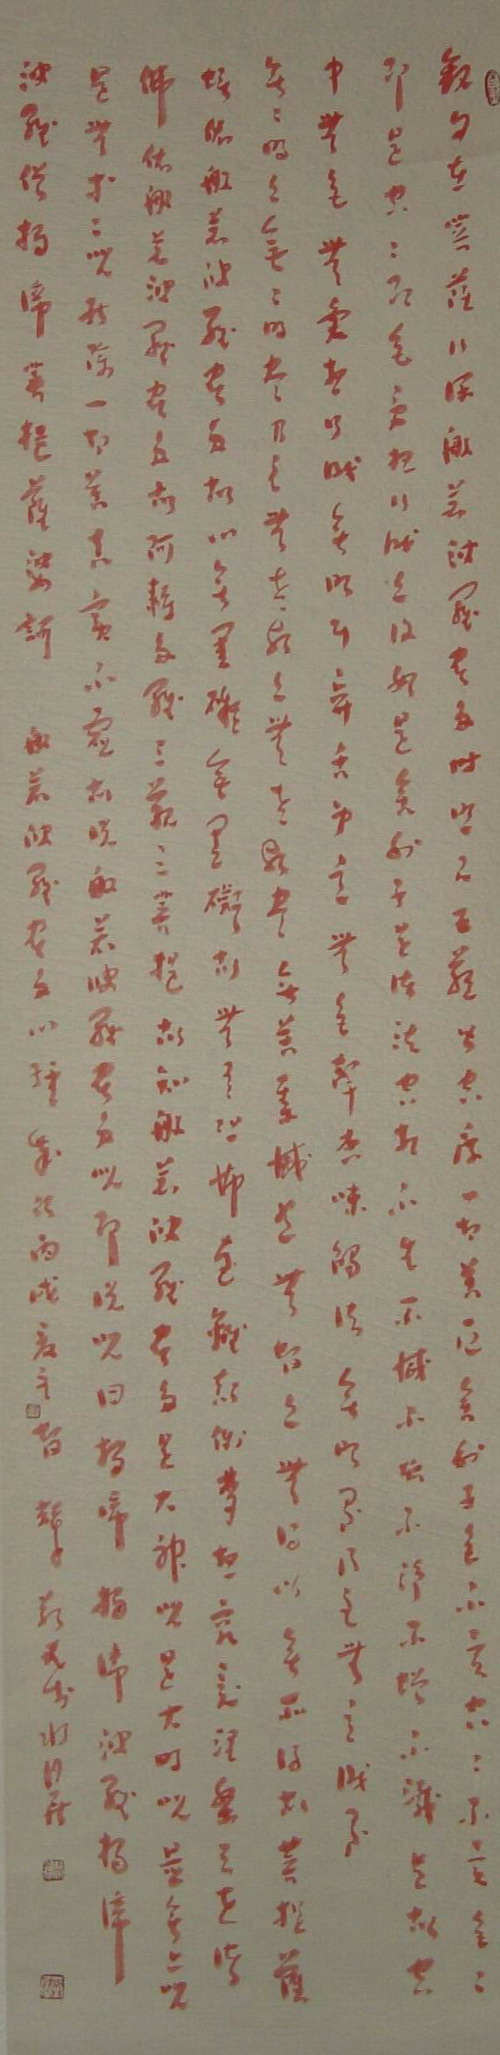 觀自在菩薩行深般若波羅蜜多時照見五蘊皆空度一切苦厄舍利子色不異空空不異色色
即是空空即是色受想行識亦復如是舍利子是諸法空相不生不滅不垢不淨不增不減是故空
中無色無受想行識無眼耳鼻舌身意無色聲香味觸法無眼界乃至無意識界
無無明亦無無明盡乃至無老死亦無老死盡無苦集滅道無智亦無得以無所得故菩提薩
埵依般若波羅蜜多故心無罣礙無罣礙故無有恐怖遠離顛倒夢想究竟涅槃三世諸
佛依般若波羅蜜多故阿耨多羅三藐三菩提故知般若波羅蜜多是大神咒是大明咒是無上咒
是無等等咒能除一切苦真實不虛故說般若波羅蜜多咒即說咒曰揭諦揭諦波羅揭諦
波羅僧揭諦菩提薩婆訶 般若波羅蜜多心經 歲次丙戌